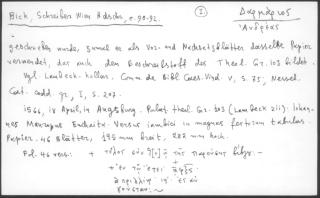 Bick, Schreiber Wien. Hdschr., s. 90-92.
I
Δαρμάριος
Ἀνδρέας
geschrieben wurde, zumal er als Vor- und Nachsetzblätter dasselbe Papier
verwendet, das auch den Beschreibstoff des Theol. Gr. 103 bildet.
Vgl. Lambeck-Kollar. Comm. de Bibl. Caes. Vind. V, S. 75, Nessel,
Cat. codd. gr., I, S. 207.
1566, 18 April, in Augsburg. Palat. Theol. Gr. 203 (Lambeck 211): Johan-
nes Mauropus Euchaita. Versus iambici in magnas festorum tabulas.
Papier. 46 Blätter, 195 mm breit, 282 mm hoch.
Fol. 46 vers: + τέλος σὺν θ[ε]ῷ τῆς παρούσης βίβλου: -
+ ἐν τῷ ἔτει αφξς
ἀπριλλίῳ ιη ἐν αὐ
γούστῃ: ~